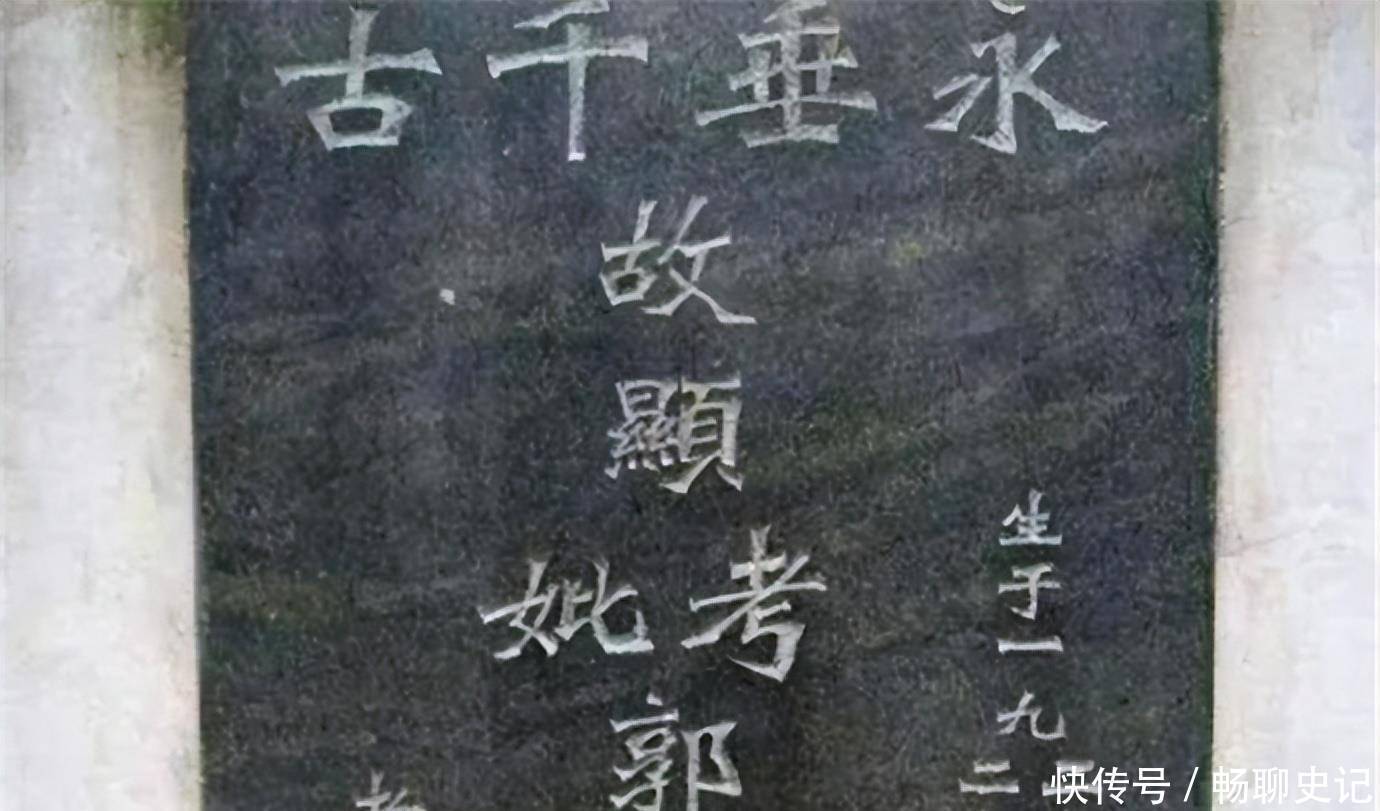 永垂千古
生于一九
二
故顯
考妣
郭
快传号 / 畅聊史记